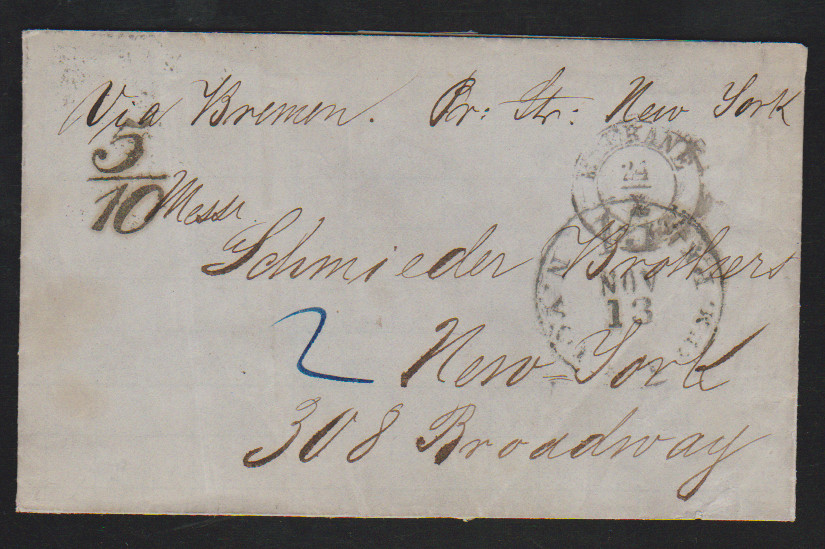 Via Bremen. Pr: Str: New York
5/10
Messr
Schmieder Brothers
2
New-York
308 Broadway
NOV
13